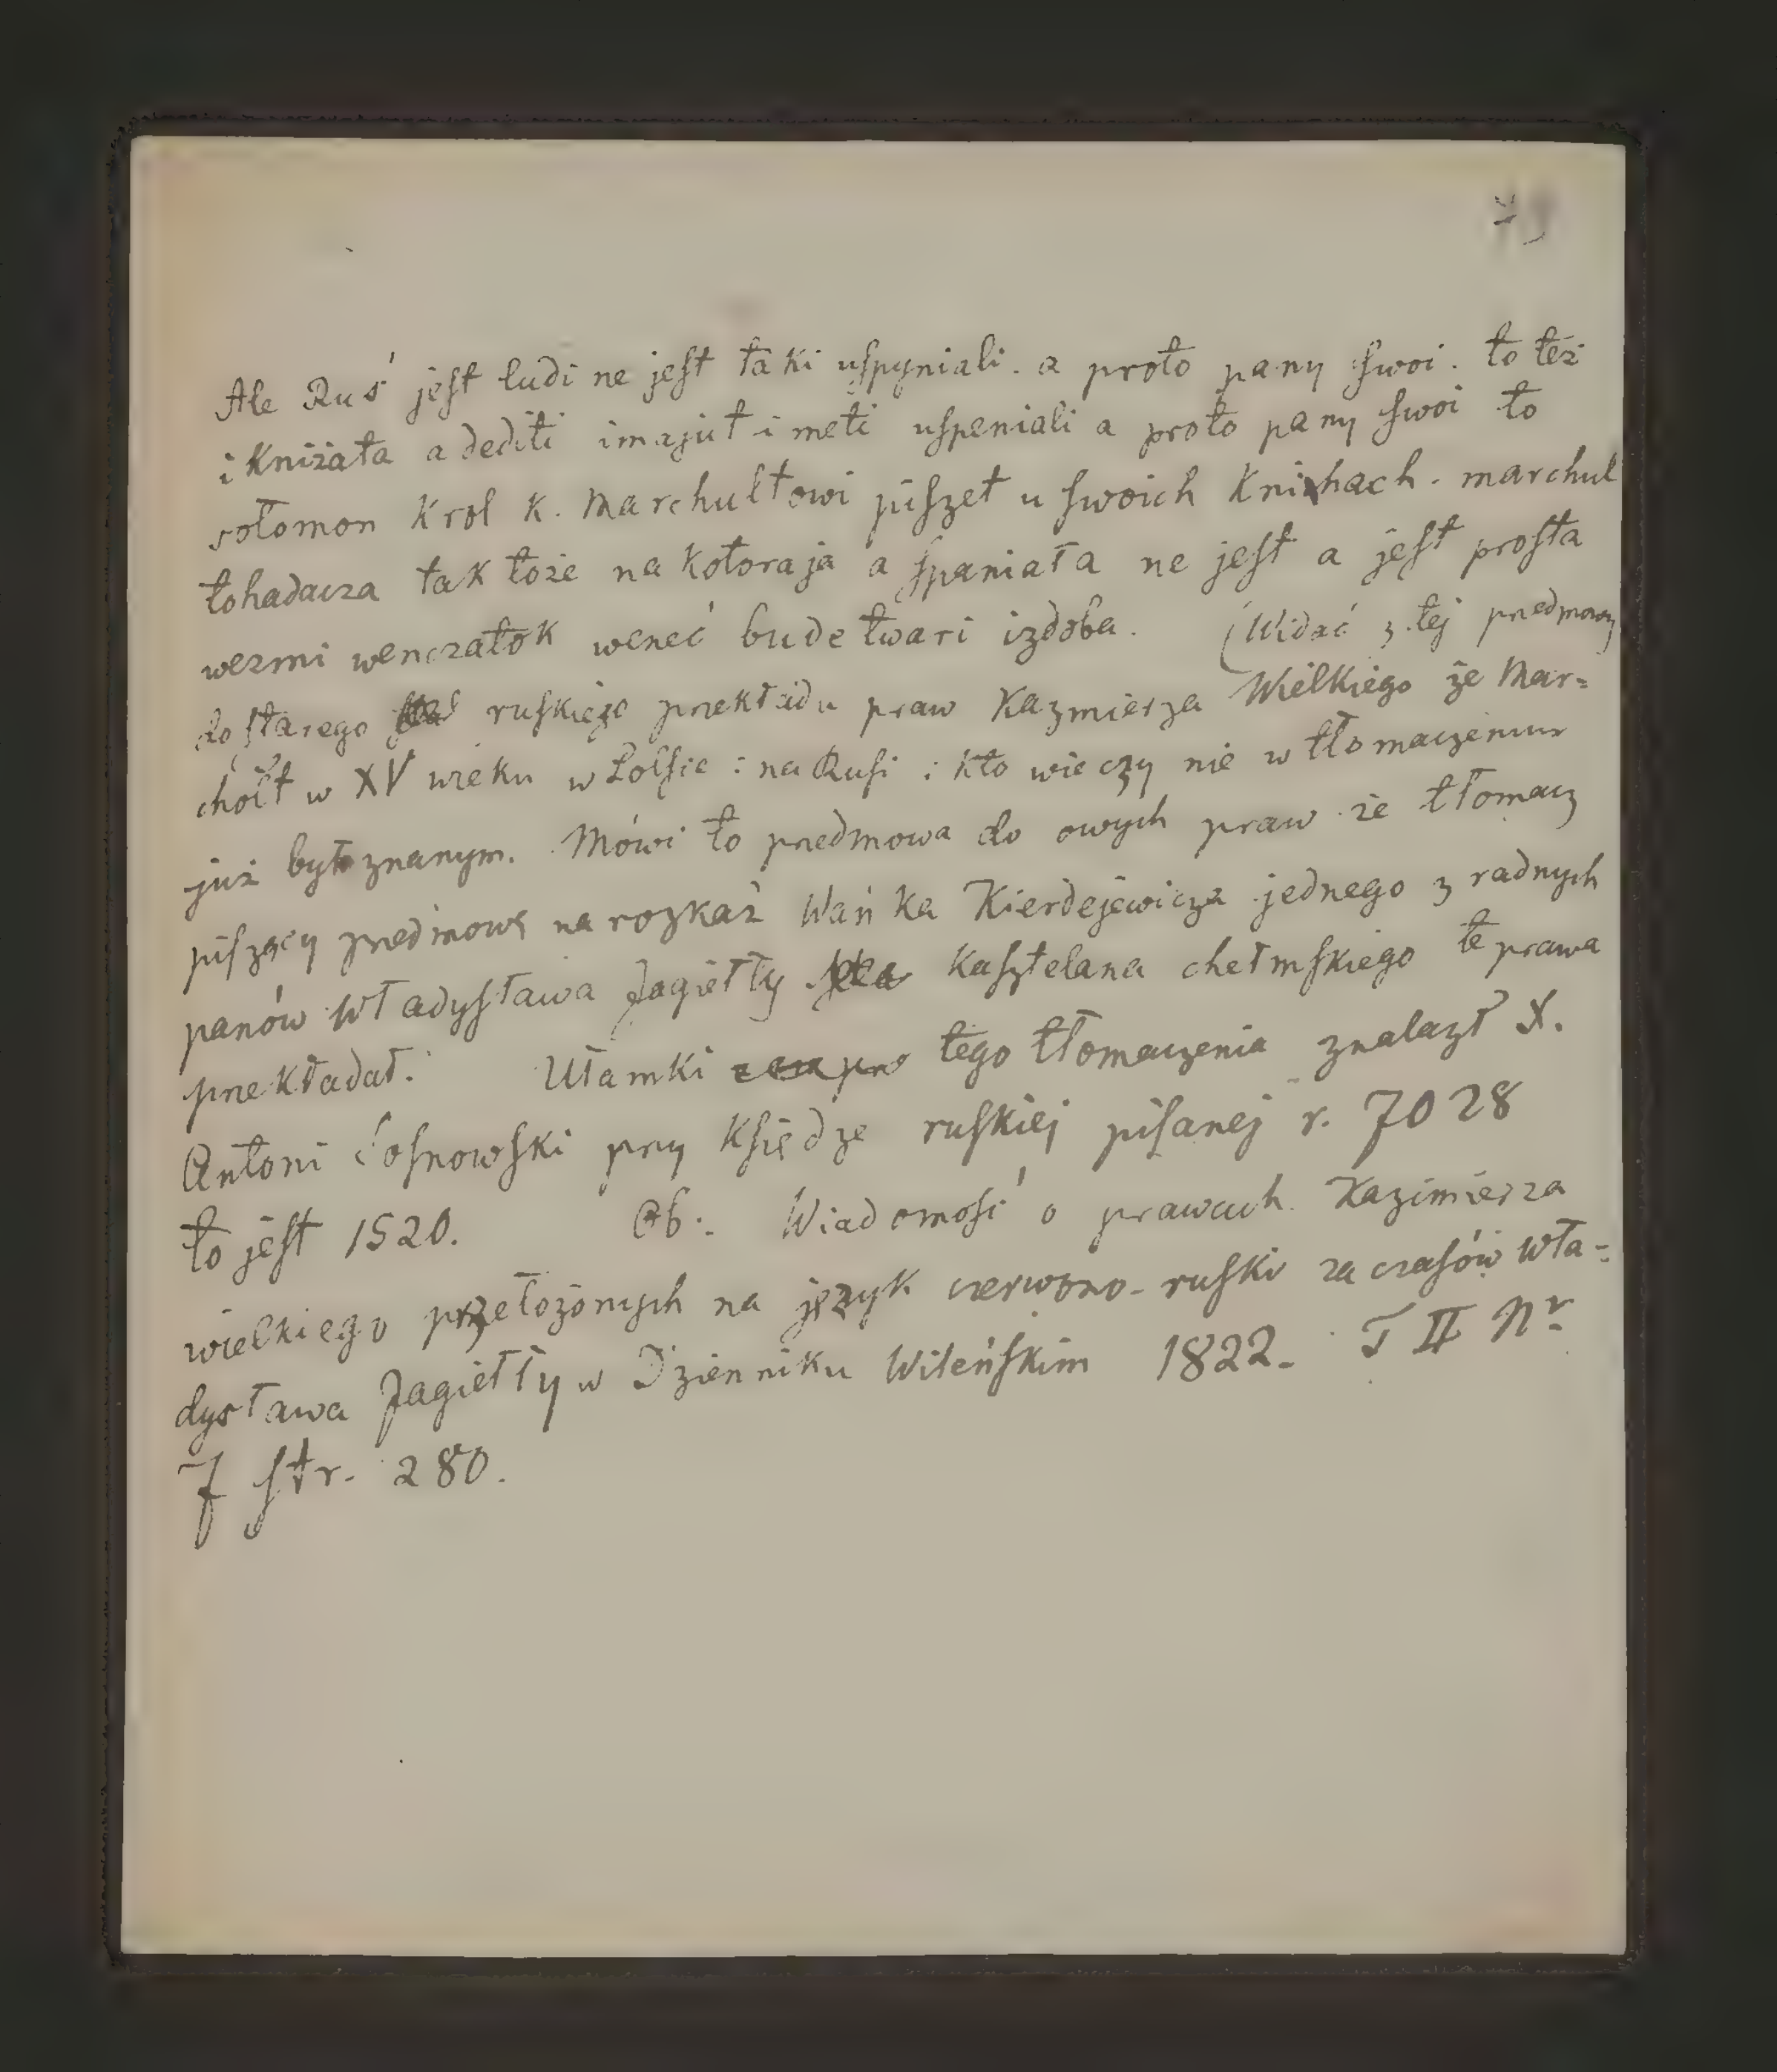 Ale Ruś jest ludi ne jest taki uspyniali. a proto pany swoi. to też
i kniżata a dediti imajut i meti uspeniali a proto pany swoi to
sołomon Krol k. Marchułtowi piszet u swoich Knihach. marchuł
tohadacza tak toże na kotoraja a spaniała ne jest a jest prosta
wezmi wenczatok weneć bude twari izdoba. (Widać z tej przedmowy
do starego ruskiego przekładu praw Kazmierza Wielkiego że Mar=
chołt w XV wieku w Polsce i na Rusi i kto wie czy nie w tłomaczeniu
już był znanym. Mówi to przedmowa do owych praw że tłomacz
piszący przedmowę na rozkaz Wańka Kierdejewicza jednego z radnych
panów Władysława Jagiełły kasztelana chełmskiego te prawa
przekładał. Ułamki tego tłomaczenia znalazł X.
Antoni Sosnowski przy Księdze ruskiej pisanej r. 7028
to jest 1520. Ob: Wiadomość o prawach Kazimierza
wielkiego przełożonych na język czerwono-ruski za czasów Wła=
dysława Jagiełły w Dzienniku Wileńskim 1822. T II Nr
7 str. 280.